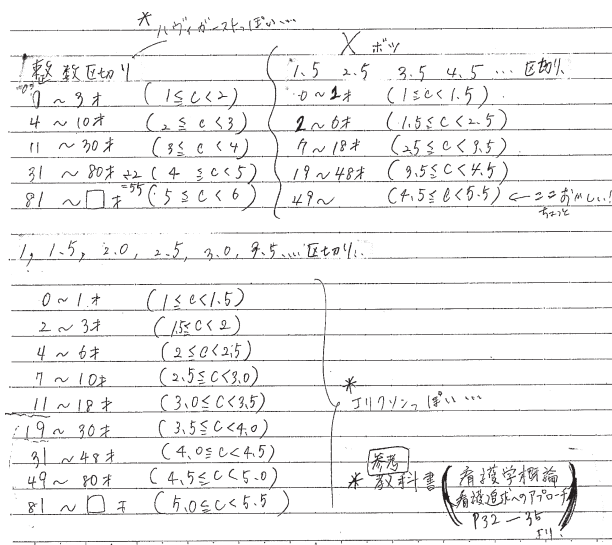 * ハヴィガーストっぽい…
整数区切り
0 ~ 3才 (1≦c<2)
4 ~ 10才 (2≦c<3)
11 ~ 30才 (3≦c<4)
31 ~ 80才 (4≦c<5)
÷2
=55
81 ~ □才 (5≦c<6)
× ボツ
1.5 2.5 3.5 4.5 … 区切り
0~1才 (1≦c<1.5)
2~6才 (1.5≦c<2.5)
7~18才 (2.5≦c<3.5)
19~48才 (3.5≦c<4.5)
49~ (4.5≦c<5.5) ←ここおかしい!
ちょっと
1, 1.5, 2.0, 2.5, 3.0, 3.5… 区切り..
0 ~ 1才 (1≦c<1.5)
2 ~ 3才 (1.5≦c<2)
4 ~ 6才 (2≦c<2.5)
7 ~ 10才 (2.5≦c<3.0)
11 ~ 18才 (3.0≦c<3.5)
19 ~ 30才 (3.5≦c<4.0)
31 ~ 48才 (4.0≦c<4.5)
49 ~ 80才 (4.5≦c<5.0)
81 ~ □才 (5.0≦c<5.5)
*
エリクソンっぽい…
参考
* 教科書 (看護学概論
看護追求へのアプローチ
P32-35
より.)